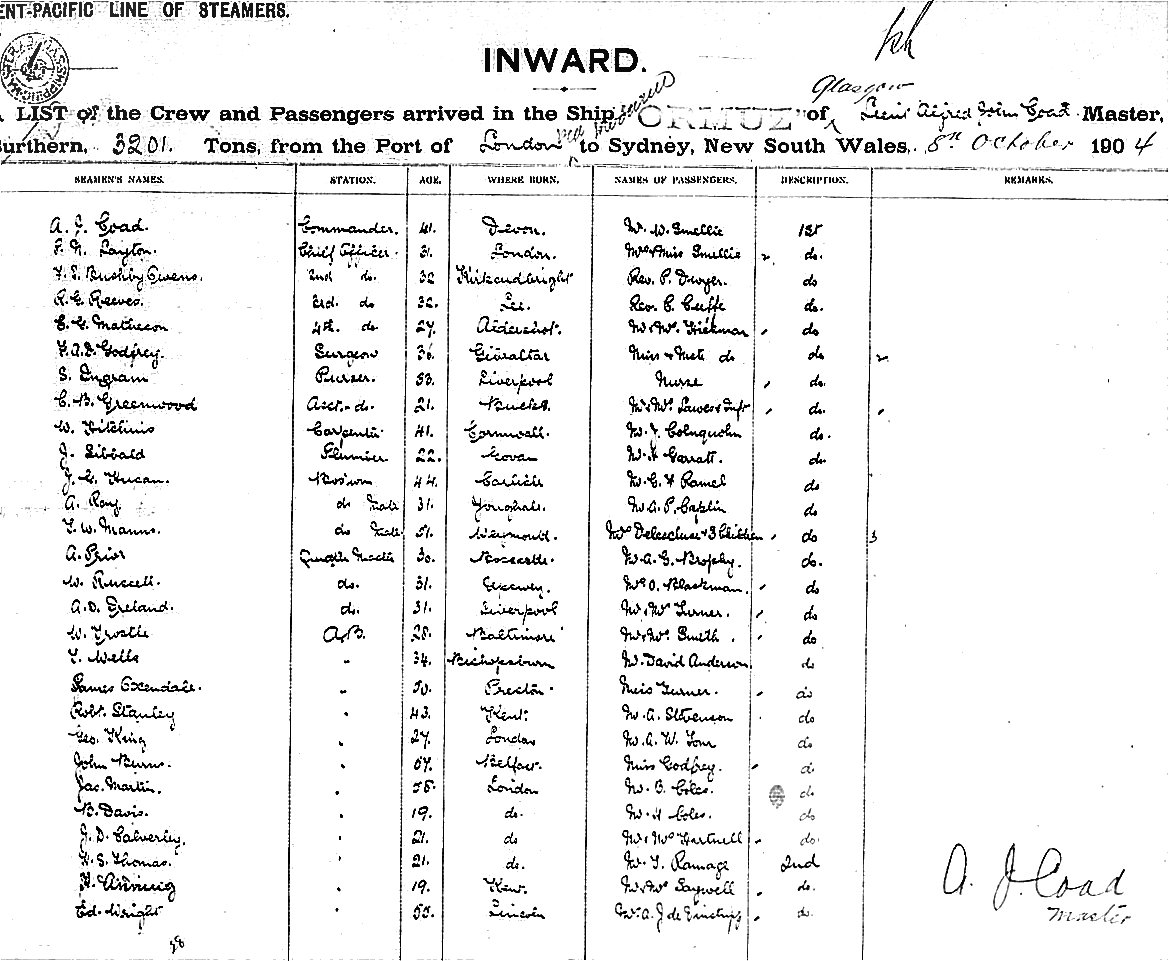 ENT-PACIFIC LINE OF STEAMERS.
INWARD.
A LIST of the Crew and Passengers arrived in the Ship ORMUZ of Glasgow Alfred John Coad Master,
Burthern, 3201. Tons, from the Port of London to Sydney, New South Wales, 8th October 1904
SEAMEN'S NAMES. STATION. AGE. WHERE BORN. NAMES OF PASSENGERS. DESCRIPTION. REMARKS.
A. J. Coad. Commander. 41. Devon. Mr. W. Smellie 1st
Layton. Chief Officer. 31. London. Mrs & Miss Smellie do.
Bushby Owens. 2nd do. 32 Kirkcudbright Rev. P. Dwyer. do
R. G. Reeves. 3rd. do 32. Lee. Rev. C. Cuffe do.
C. G. Matheson 4th. do 27. Aldershot. Mr & Mrs. Hickman do
Godfrey. Surgeon 36. Gibraltar Miss & do do
S. Ingram Purser. 53. Liverpool Nurse do.
C. B. Greenwood Asst. do. 21. Bucks. Mr & Mrs. Lawes & Inft do.
W. Carpenter 41. Cornwall. Mr. J. Colnquohn do.
J. Sibbald Plumber 22. Govan Mr. H Garratt. do.
J. G. Bos'un 44. Carlisle Mr. C. F Ramel do
A. Roy. do Mate 31. Youghal. Mr. A. P. Caplin do
T. W. Manns. do Mate 51. Weymouth. Mrs Delescluse & 3 Children do 3
A. Prior Quarter Master 30. Newcastle. Mr. A. G. Brophy. do.
W. Russell. do. 31. Mrs O. Blackman. do
A. D. Ireland. do. 31. Liverpool Mr & Mrs Turner. do
W. Trostle A.B. 28. Baltimore Mr & Mrs. Smith. do
T. Wells " 34. Mr. David Anderson. do
James Oxendale. " 50. Preston. Miss Turner. do
Robt. Stanley " 43. Kent. Mr. A. Stevenson do
Geo. King " 27. London Mr. A. W. Tom do
John Burns. " 57. Belfast. Miss Godfrey. do
Jas. Martin. " 58. London Mr. B. Coles. do
B. Davis. " 19. do. Mr. H Coles. do
J. D. Calverley. " 21. do Mr & Mrs Hartnell do.
H. S. Thomas. " 21. do. Mr. T. Ramage 2nd
H. " 19. Kent. Mr & Mrs Saywell do.
Ed. Wright " 55. Lincoln Mr. A. J de do.
28
A. J. Coad
Master